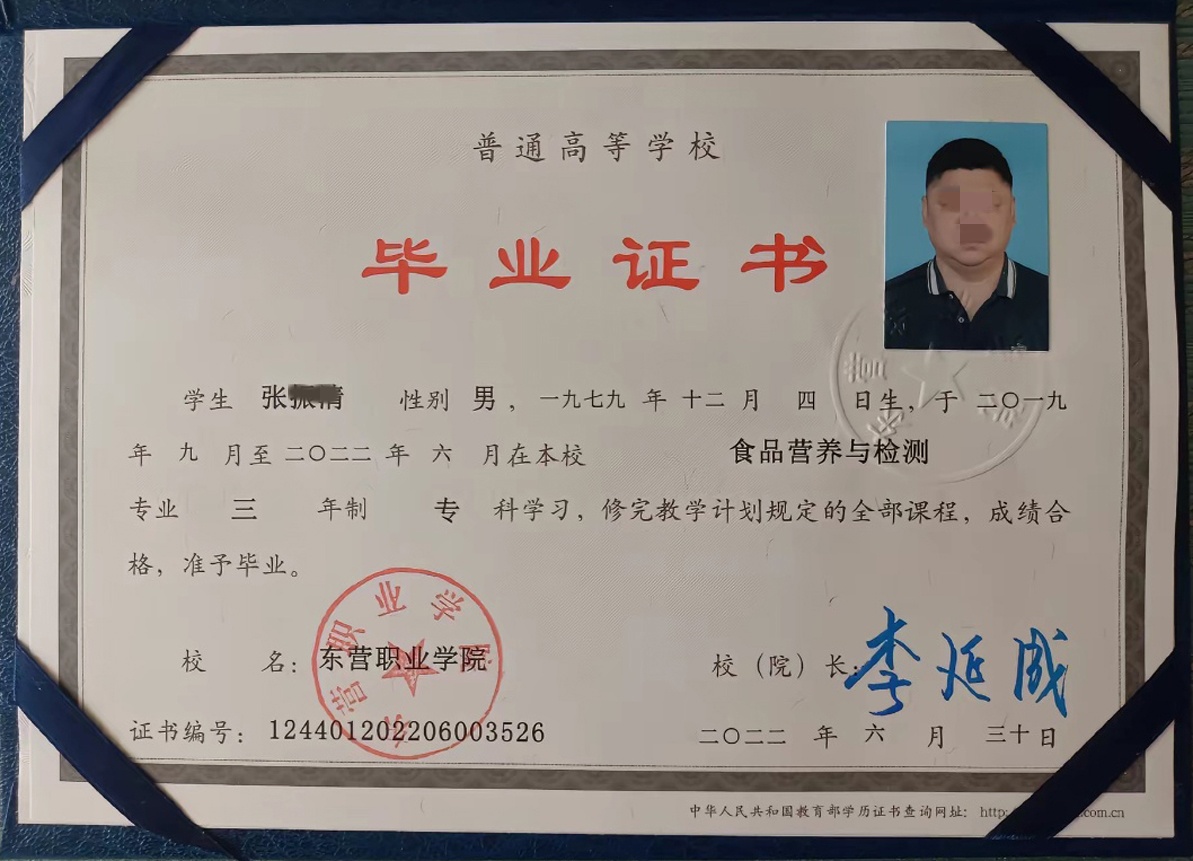 普通高等学校
毕业证书
学生 张 性别 男，一九七九 年 十二 月 四 日生，于 二〇一九
年 九 月至 二〇二二 年 六 月在本校 食品营养与检测
专业 三 年制 专 科学习，修完教学计划规定的全部课程，成绩合
格，准予毕业。
校 名：东营职业学院
校（院）长：李延成
证书编号：124401202206003526
二〇二二 年 六 月 三十日
中华人民共和国教育部学历证书查询网址：http: .com.cn